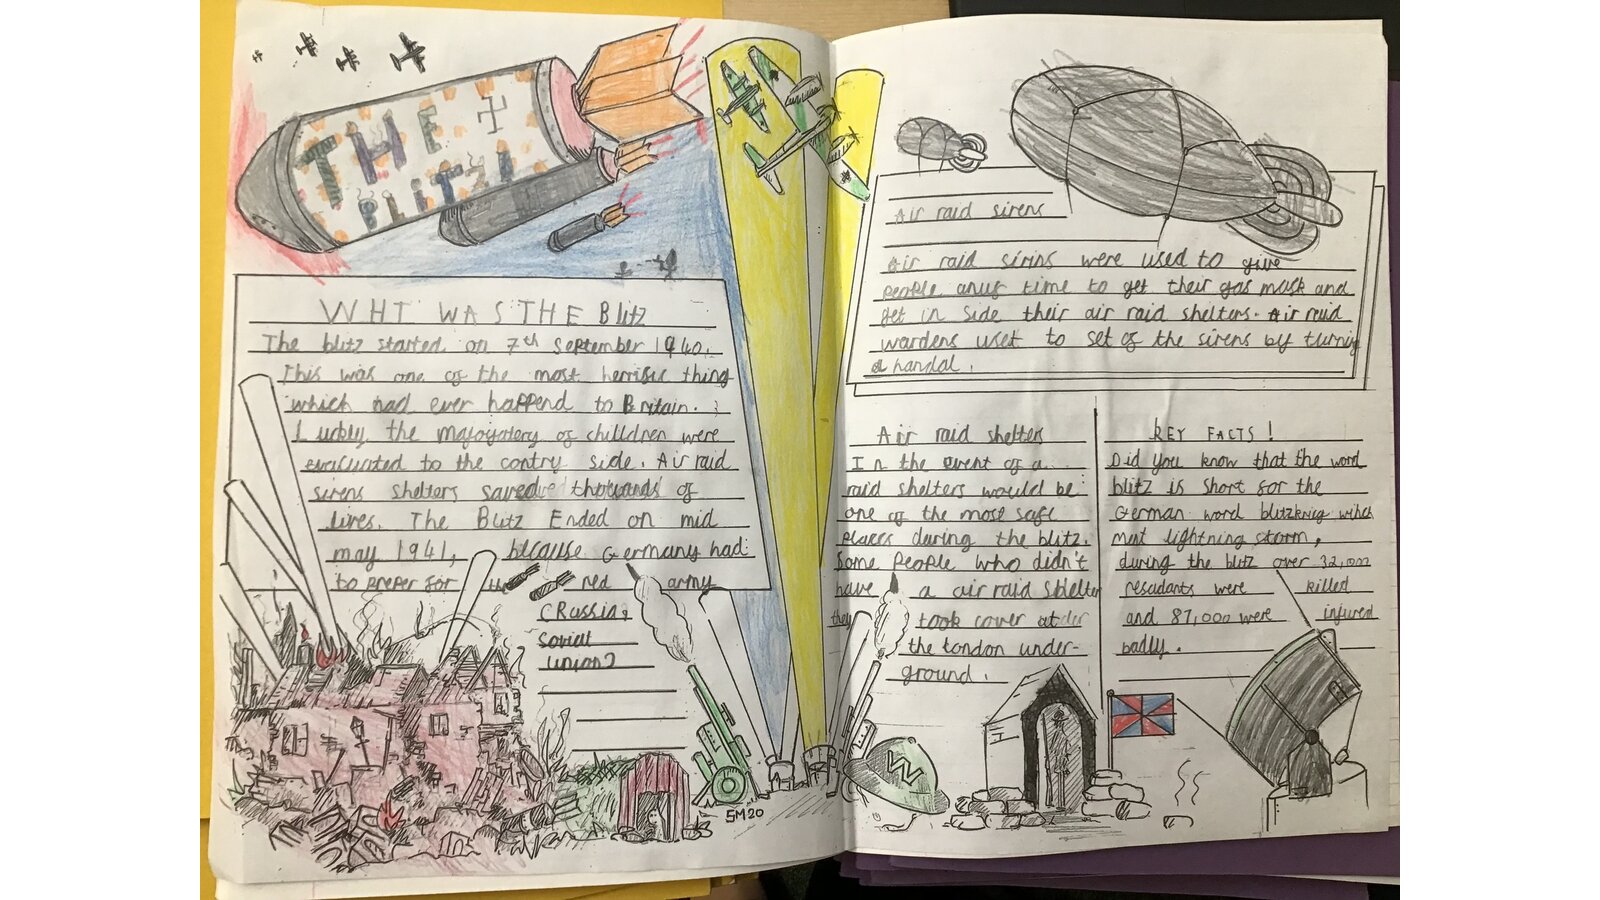 THE
BLITZ!
WHT WAS THE Blitz
The blitz started on 7th September 1940.
This was one of the most herrific thing
which had ever happend to Britain.
Luckly the majoyatery of chilldren were
evacuated to the contry side. Air raid
sirens shelters saved thouands of
lives. The Blitz Ended on mid
may 1941, because Germany had
to preper for the red army
(Russia,
Soviet
union)
SM20
Air raid sirens
Air raid sirins were used to give
people time to get their gas mask and
get in side their air raid shelters. Air raid
wardens uset to set of the sirens by turning
a handal.
Air raid shelters
In the event of a
raid shelters would be
one of the most safe
places during the blitz.
Some people who didn't
have a air raid shelter
they took cover at
the london under-
ground.
KEY FACTS!
Did you know that the word
blitz is short for the
German word blitzkrieg wihch
ment lightning storm,
during the blitz over 32,000
resadants were killed
and 87,000 were injured
badly.
W